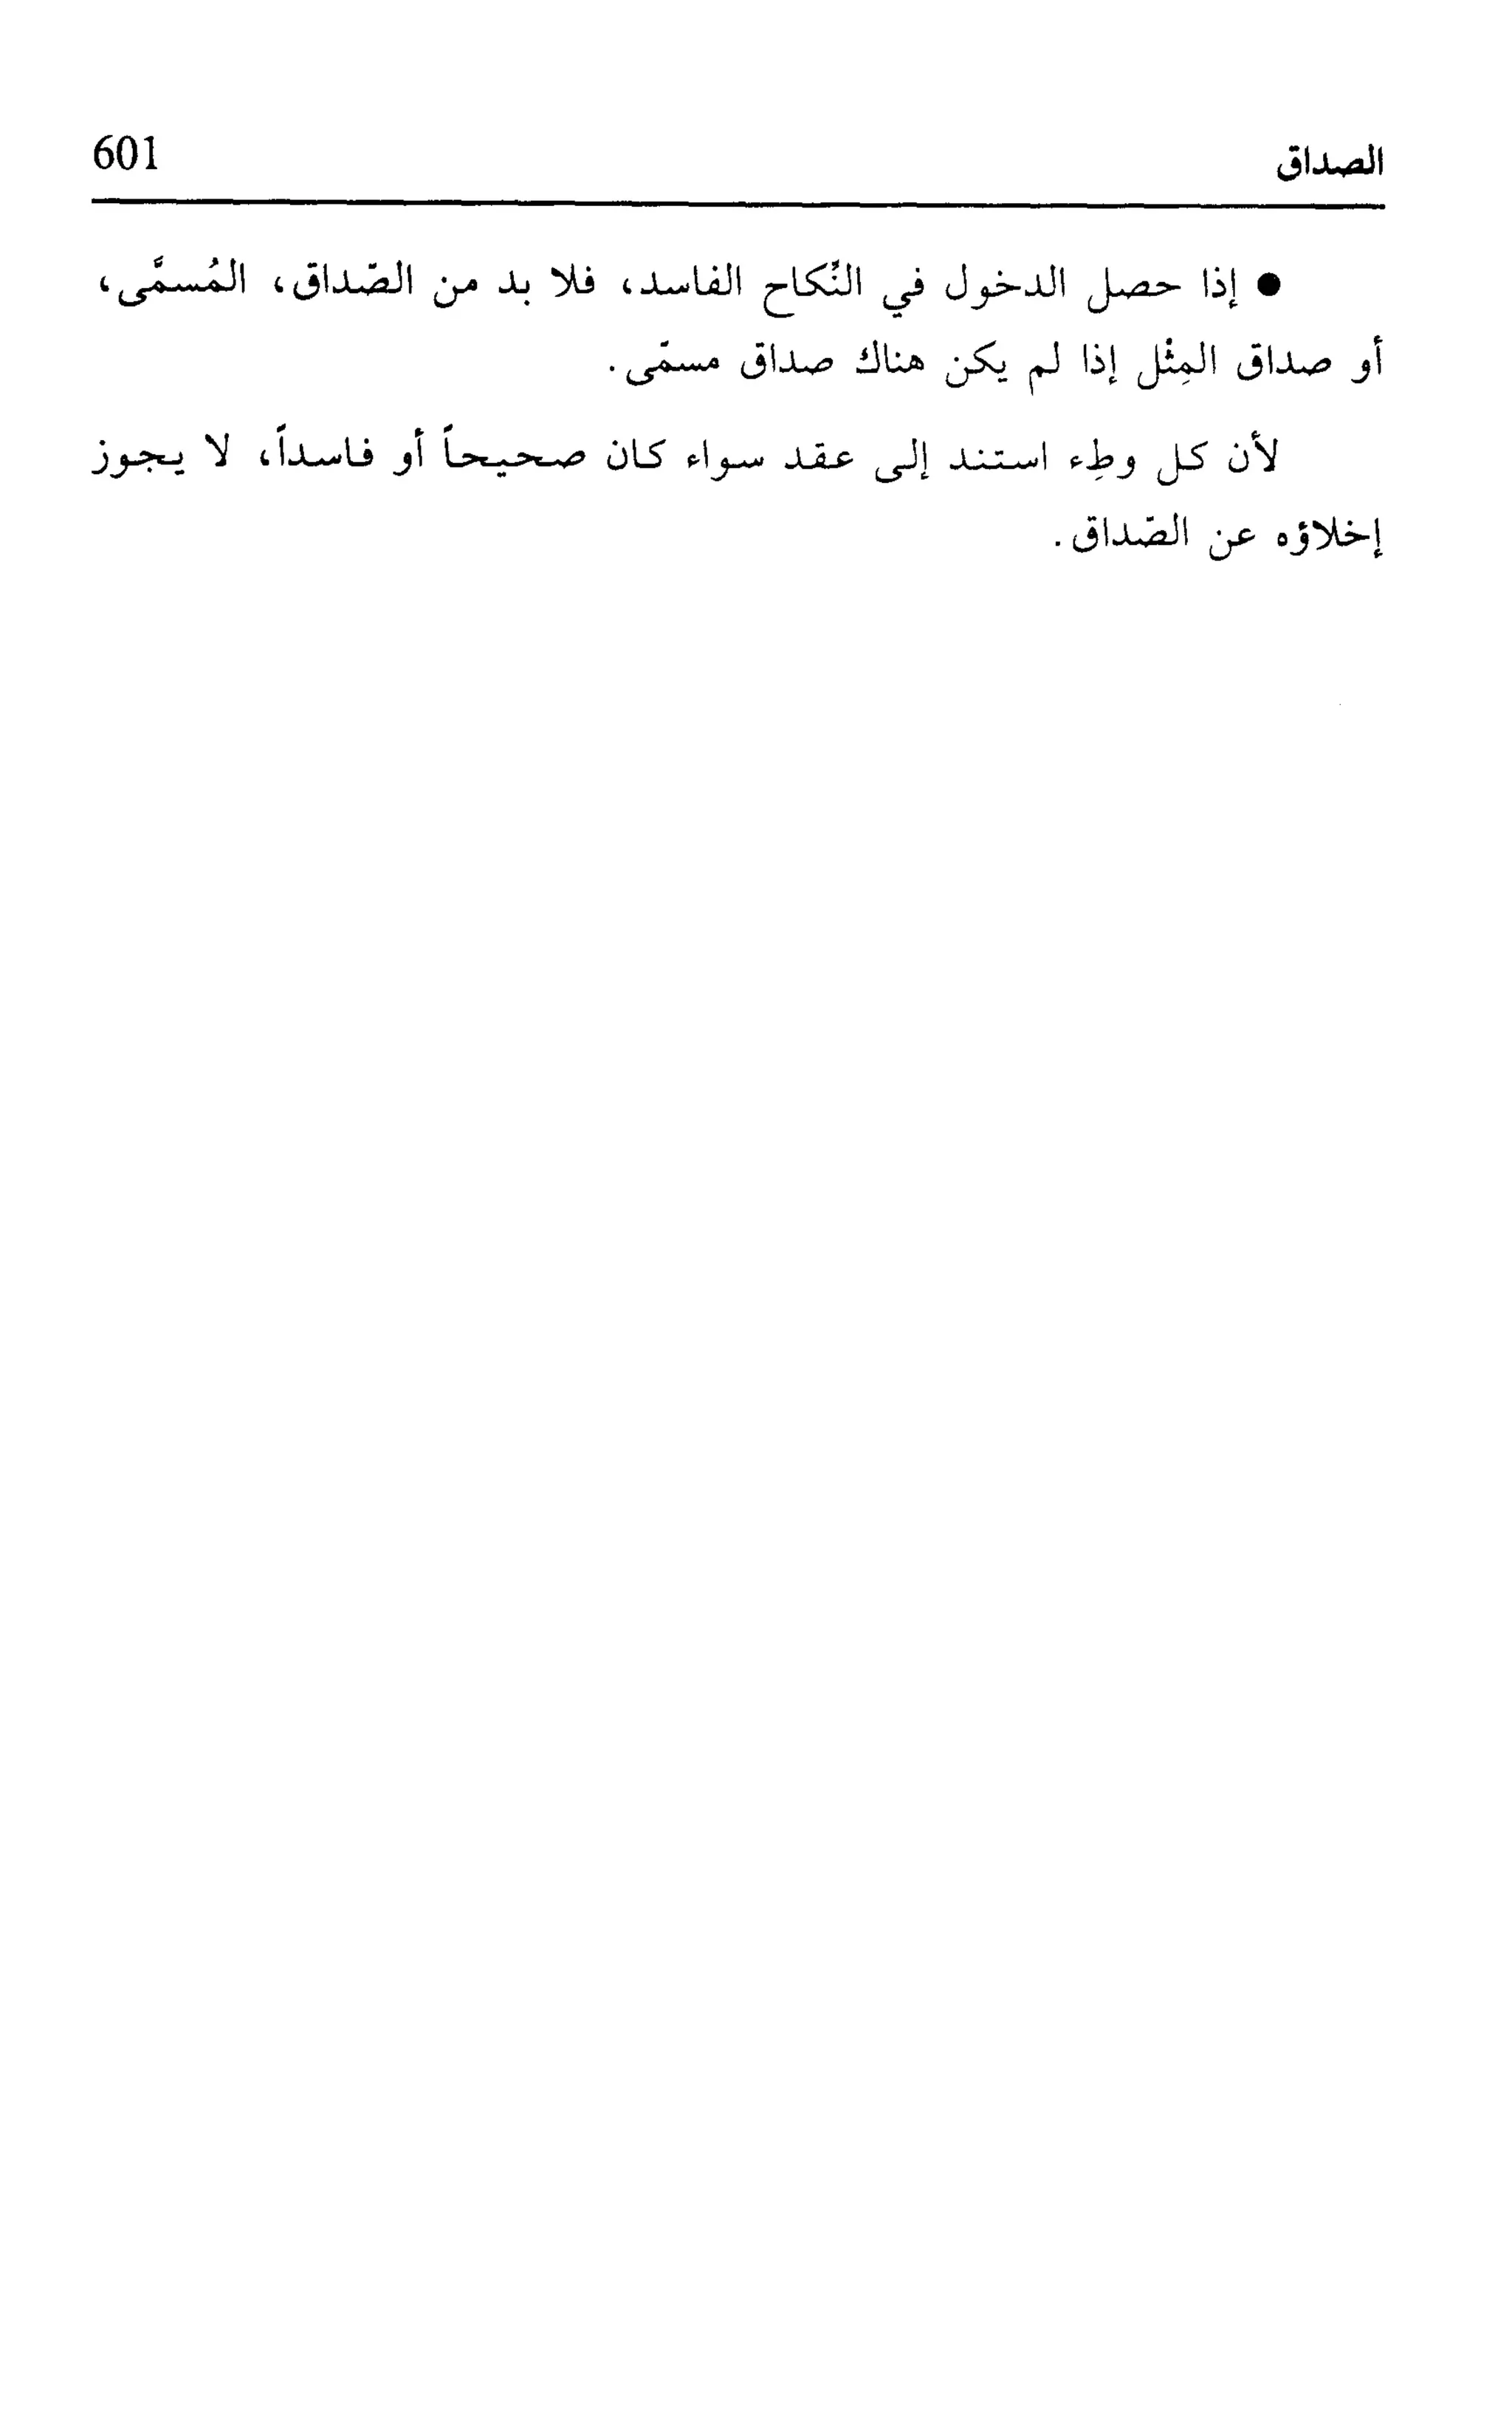 الصداق 601
● إذا حصل الدخول في النِّكاح الفاسد، فلا بد من الصّداق، المُسمَّى،
أو صداق المِثْل إذا لم يكن هناك صداق مسمّى.
لأن كل وطِء استند إلى عقد سواء كان صحيحاً أو فاسداً، لا يجوز
إخلاؤه عن الصّداق.